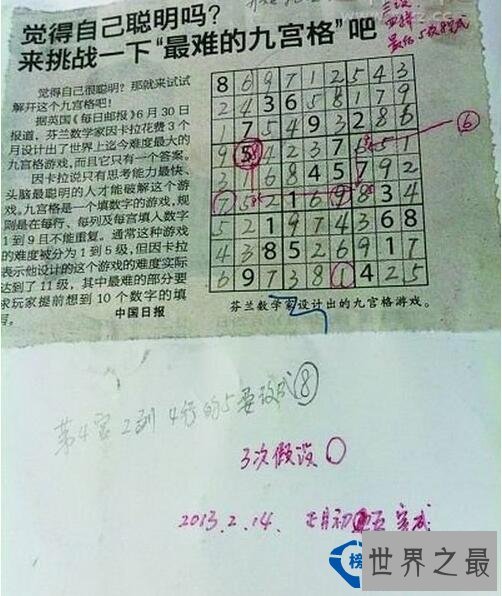 觉得自己聪明吗?
来挑战一下“最难的九宫格”吧
觉得自己很聪明?那就来试试
解开这个九宫格吧!
据英国《每日邮报》6月30日
报道,芬兰数学家因卡拉花费3个
月设计出了世界上迄今难度最大的
九宫格游戏,而且它只有一个答案。
因卡拉说只有思考能力最快、
头脑最聪明的人才能破解这个游
戏。九宫格是一个填数字的游戏,规
则是在每行、每列及每宫填人数字
1到9且不能重复。通常这种游戏
的难度被分为1到5级,但因卡拉
表示他设计的这个游戏的难度实际
达到了11级,其中最难的部分要
求玩家提前想到10个数字的填
写。
中国日报
8 6 9 7 1 2 5 4 3
2 4 3 6 5 8 1 7 9
1 7 5 4 9 3 2 8 6
9 4 2 3 7 5 1
3 1 6 8 4 5 7 9 2
7 5 2 1 6 9 8 3 4
5 2 1 9 7 4 3 6 8
4 3 8 5 2 6 9 1 7
6 9 7 3 8 1 4 2 5
⑥
芬兰数学家设计出的九宫格游戏。
第4宫2列4行的5要改成⑧
3次假设
2013.2.14、正月初五完成
榜
世界之最